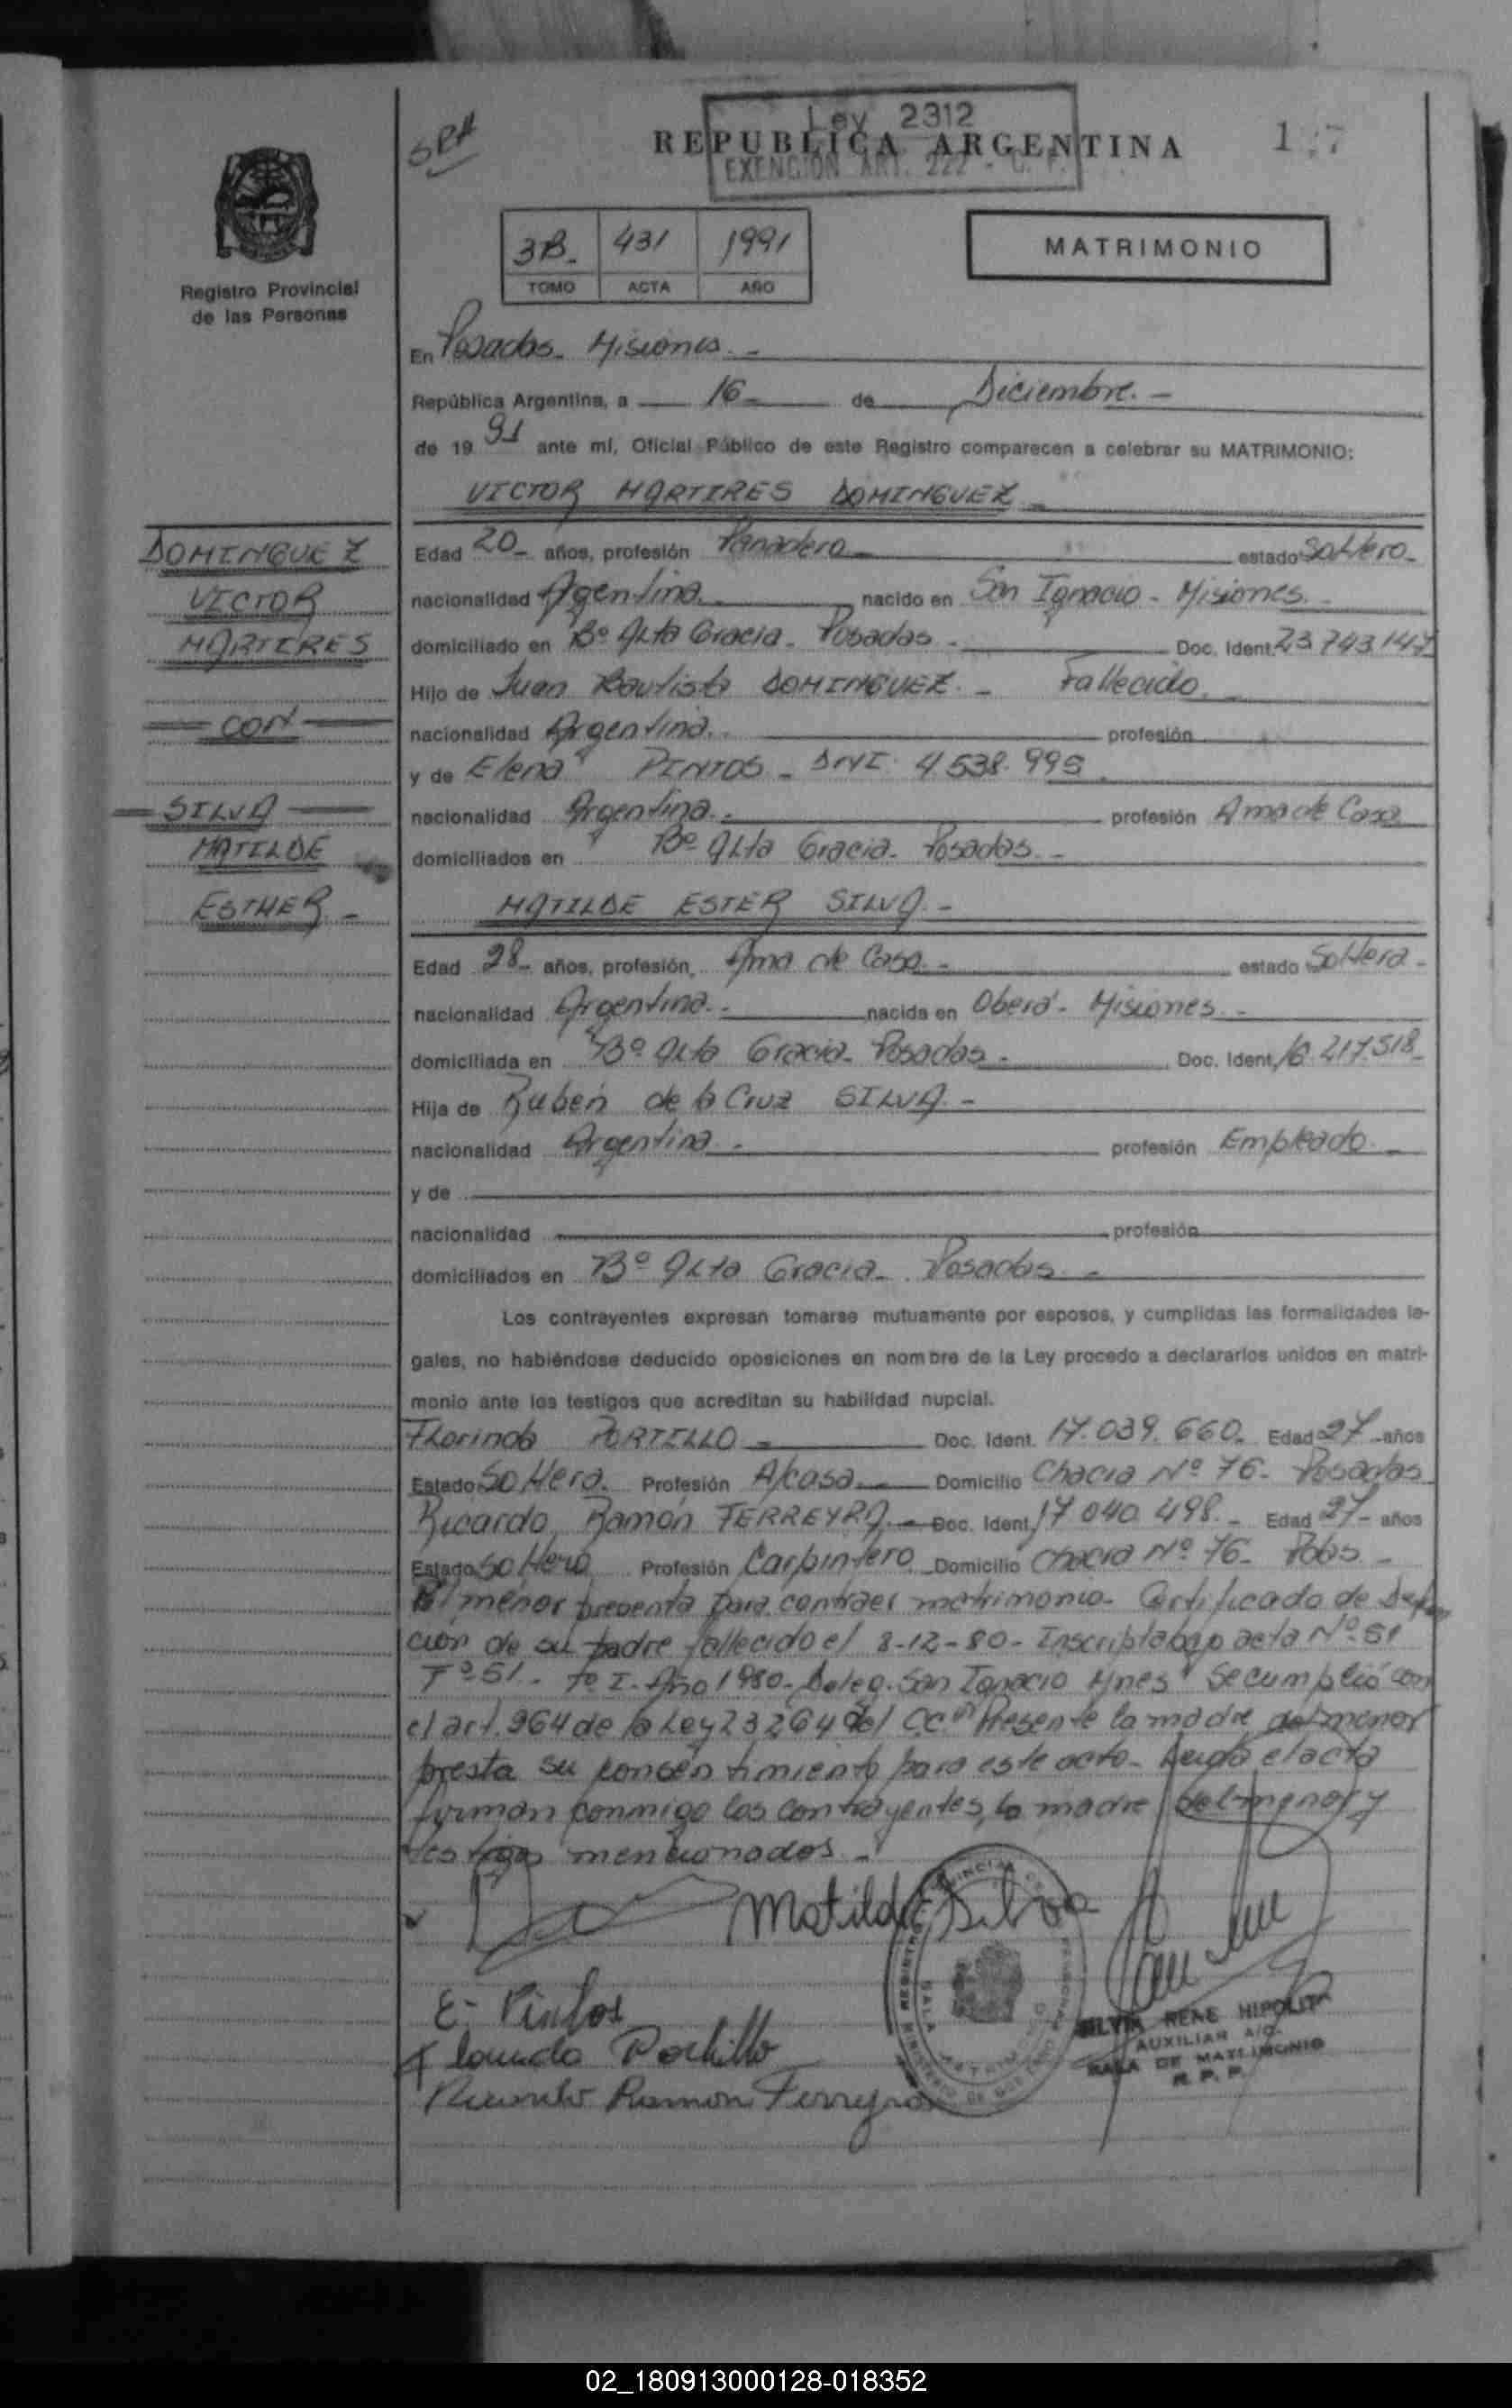 SRA
Ley 2312
REPUBLICA ARGENTINA
EXENCION ART. 222 - C. F.
Registro Provincial
de las Personas
3B- 431 1991
TOMO ACTA AÑO
MATRIMONIO
En Posadas - Misiones. -
República Argentina, a 16- de Diciembre. -
de 19 91 ante mí, Oficial Público de este Registro comparecen a celebrar su MATRIMONIO:
VICTOR MARTIRES DOMINGUEZ -
DOMINGUEZ
VICTOR
MARTIRES
CON
SILVA
MATILDE
ESTHER -
Edad 20- años, profesión Panadero - estado Soltero -
nacionalidad Argentina. nacido en San Ignacio - Misiones. -
domiciliado en Bº Alta Gracia - Posadas - Doc. Ident. 23.743.147
Hijo de Juan Bautista DOMINGUEZ. - Fallecido. -
nacionalidad Argentina. profesión
y de Elena PINTOS - DNI. 4.538.995
nacionalidad Argentina. - profesión Ama de Casa
domiciliados en Bº Alta Gracia - Posadas. -
MATILDE ESTER SILVA. -
Edad 28- años, profesión, Ama de Casa. - estado Soltera -
nacionalidad Argentina. - nacida en Oberá - Misiones. -
domiciliada en Bº Alta Gracia - Posadas. - Doc. Ident. 16.217.518-
Hija de Rubén de la Cruz SILVA. -
nacionalidad Argentina. - profesión Empleado. -
y de
nacionalidad profesión
domiciliados en Bº Alta Gracia - Posadas. -
Los contrayentes expresan tomarse mutuamente por esposos, y cumplidas las formalidades le-
gales, no habiéndose deducido oposiciones en nombre de la Ley procedo a declararlos unidos en matri-
monio ante los testigos que acreditan su habilidad nupcial.
Florinda PORTILLO - Doc. Ident. 17.039.660- Edad 27 - años
Estado Soltera. Profesión A/casa. - Domicilio Chacra Nº 76- Posadas
Ricardo Ramón FERREYRA. - Doc. Ident. 17.040.498. - Edad 27- años
Estado Soltero Profesión Carpintero Domicilio Chacra Nº 76- Pdas. -
El menor presenta para contraer matrimonio - Certificado de Defun
cion de su padre fallecido el 8-12-80- Inscripta bajo acta Nº 51
Fº 51. - Tº I - Año 1980- Deleg. San Ignacio Mnes Se cumplió con
el art. 264 de la Ley 23264 del CC Presente la madre del menor
presta su consentimiento para este acto - Leida el acta
firman conmigo los contrayentes, la madre del menor y
testigos mencionados -
Matilde Silva
E- Pintos
Florinda Portillo
Ricardo Ramon Ferreyra
SILVIA RENE HIPOLITA
AUXILIAR A/C.
SALA DE MATRIMONIO
R. P. P.
02_180913000128-018352